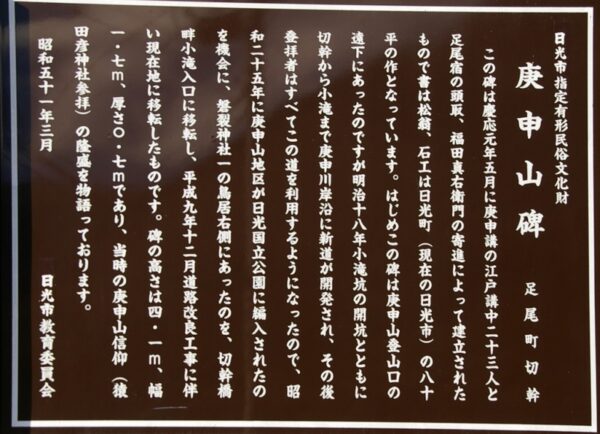 日光市指定有形民俗文化財
庚申山碑　足尾町切幹
この碑は慶応元年五月に庚申講の江戸講中二十三人と
足尾宿の頭取、福田真右衛門の寄進によって建立された
もので書は松翁、石工は日光町（現在の日光市）の八十
平の作となっています。はじめこの碑は庚申山登山口の
遠下にあったのですが明治十八年小滝坑の開坑とともに
切幹から小滝まで庚申川岸沿に新道が開発され、その後
登拝者はすべてこの道を利用するようになったので、昭
和二十五年に庚申山地区が日光国立公園に編入されたの
を機会に、磐裂神社一の鳥居右側にあったのを、切幹橋
畔小滝入口に移転し、平成九年十二月道路改良工事に伴
い現在地に移転したものです。碑の高さは四・一m、幅
一・七m、厚さ〇・七mであり、当時の庚申山信仰（猿
田彦神社参拝）の隆盛を物語っております。
昭和五十一年三月　日光市教育委員会